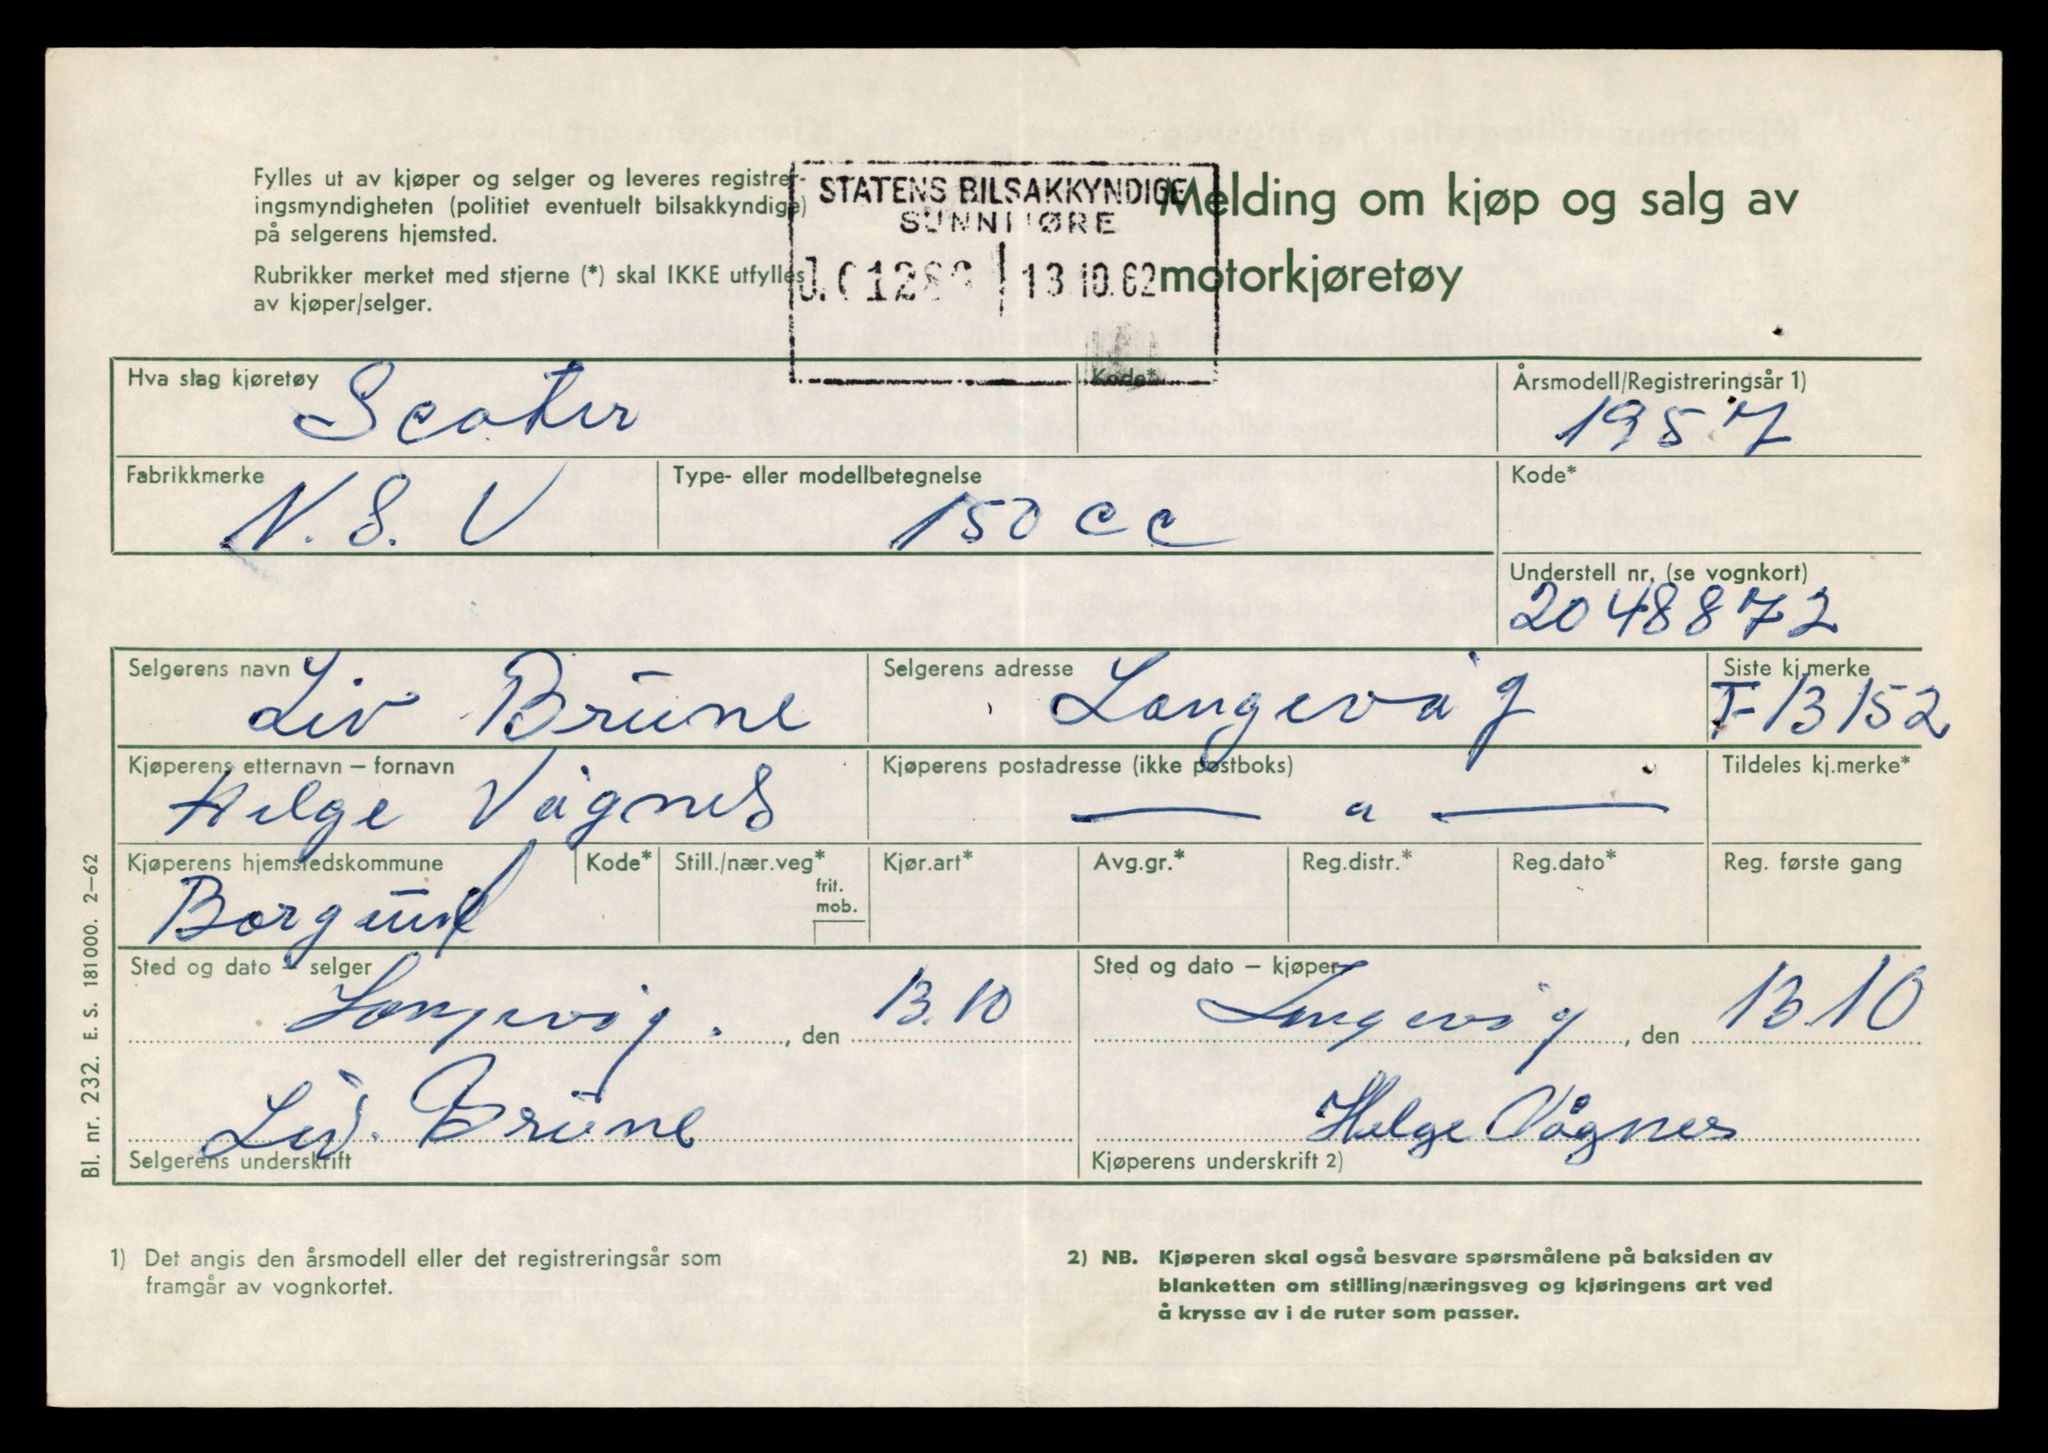 Fylles ut av kjøper og selger og leveres registrer-
ingsmyndigheten (politiet eventuelt bilsakkyndige)
på selgerens hjemsted.
Rubrikker merket med stjerne (*) skal IKKE utfylles
av kjøper/selger.
STATENS BILSAKKYNDIGE
SUNNMØRE
13.10.62
Melding om kjøp og salg av
motorkjøretøy
Hva slag kjøretøy Scoter
Kode*
Årsmodell/Registreringsår 1) 1957
Fabrikkmerke N.S.U
Type- eller modellbetegnelse 150 cc
Kode*
Understell nr. (se vognkort)
2048872
Selgerens navn Liv Brune
Selgerens adresse Langevåg
Siste kj.merke
T-13152
Kjøperens etternavn – fornavn
Helge Vågnes
Kjøperens postadresse (ikke postboks)
— " —
Tildeles kj.merke*
Kjøperens hjemstedskommune
Borgund
Kode*
Still./nær.veg*
frit.
mob.
Kjør.art*
Avg.gr.*
Reg.distr.*
Reg.dato*
Reg. første gang
Sted og dato – selger
Langevåg. , den 13.10
Liv. Brune
Selgerens underskrift
Sted og dato – kjøper
Langevåg , den 13.10
Helge Vågnes
Kjøperens underskrift 2)
Bl. nr. 232. E. S. 181000. 2–62
1) Det angis den årsmodell eller det registreringsår som
framgår av vognkortet.
2) NB. Kjøperen skal også besvare spørsmålene på baksiden av
blanketten om stilling/næringsveg og kjøringens art ved
å krysse av i de ruter som passer.